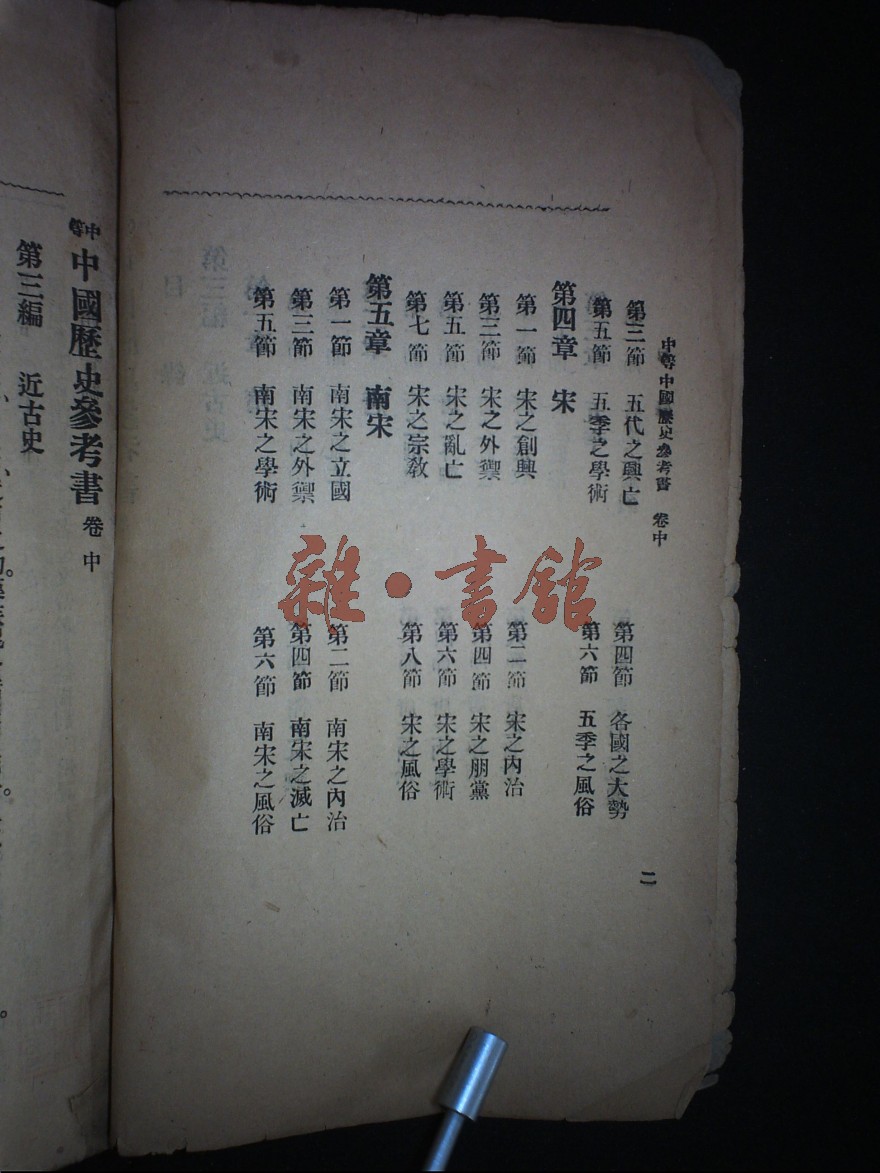 中等中國歷史參考書 卷中
第三節 五代之興亡 第四節 各國之大勢
第五節 五季之學術 第六節 五季之風俗
第四章 宋
第一節 宋之創興 第二節 宋之內治
第三節 宋之外禦 第四節 宋之朋黨
第五節 宋之亂亡 第六節 宋之學術
第七節 宋之宗敎 第八節 宋之風俗
第五章 南宋
第一節 南宋之立國 第二節 南宋之內治
第三節 南宋之外禦 第四節 南宋之滅亡
第五節 南宋之學術 第六節 南宋之風俗
二
中等中國歷史參考書 卷中
第三編 近古史
雜·書館